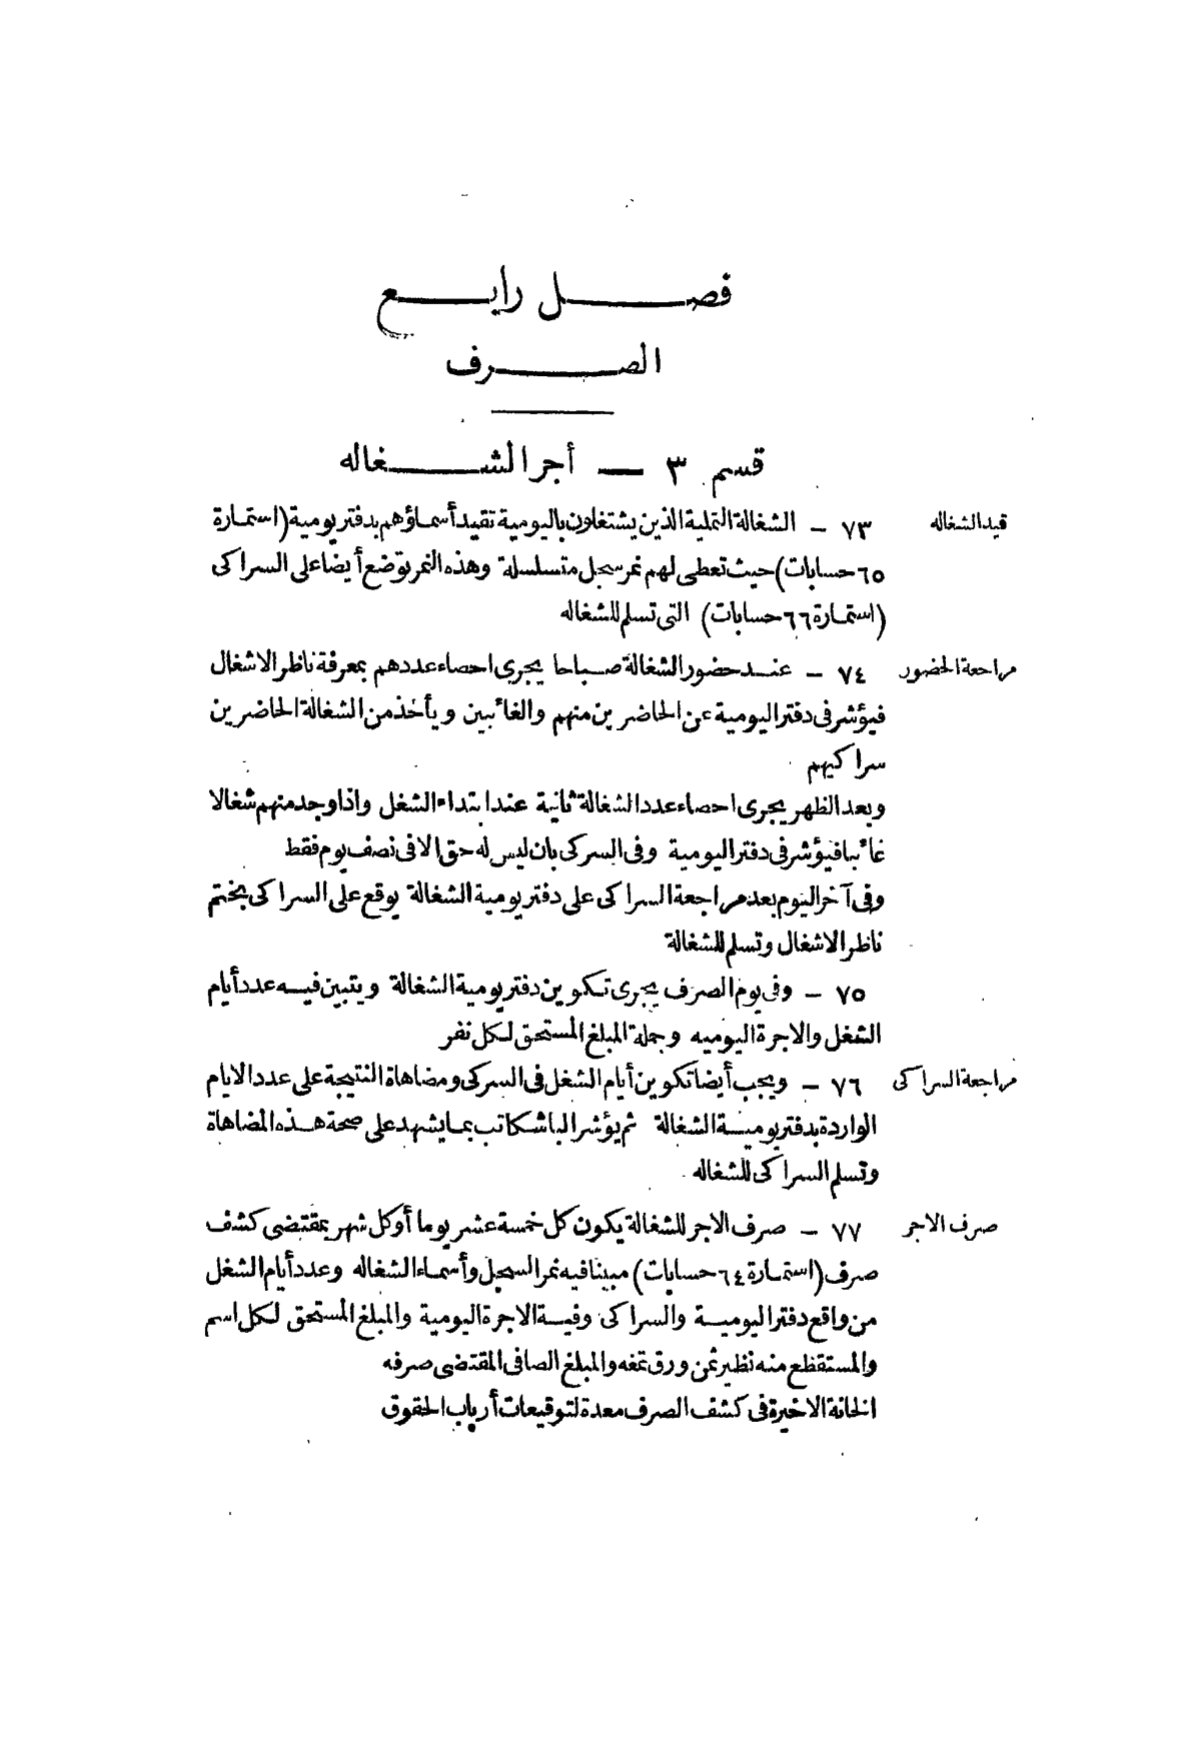 فصل رابع
الصرف
قسم ٣ — أجر الشغاله
قيد الشغاله
٧٣ — الشغالة التملية الذين يشتغلون باليومية تقيد أسماؤهم بدفتر يومية (استمارة
٦٥ حسابات) حيث تعطى لهم نمر سجل متسلسلة وهذه النمر توضع أيضا على السراكى
(استمارة ٦٦ حسابات) التى تسلم للشغاله
مراجعة الحضور
٧٤ — عند حضور الشغالة صباحا يجرى احصاء عددهم بمعرفة ناظر الاشغال
فيؤشر فى دفتر اليومية عن الحاضرين منهم والغائبين ويأخذ من الشغالة الحاضرين
سراكيهم
وبعد الظهر يجرى احصاء عدد الشغالة ثانية عند ابتداء الشغل واذا وجد منهم شغالا
غائبا فيؤشر فى دفتر اليومية وفى السركى بان ليس له حق الا فى نصف يوم فقط
وفى آخر اليوم بعد مراجعة السراكى على دفتر يومية الشغالة يوقع على السراكى بختم
ناظر الاشغال وتسلم للشغالة
٧٥ — وفى يوم الصرف يجرى تكوين دفتر يومية الشغالة ويتبين فيه عدد أيام
الشغل والاجرة اليوميه وجملة المبلغ المستحق لكل نفر
مراجعة السراكى
٧٦ — ويجب أيضا تكوين أيام الشغل فى السركى ومضاهاة النتيجة على عدد الايام
الواردة بدفتر يومية الشغالة ثم يؤشر الباشكاتب بما يشهد على صحة هذه المضاهاة
وتسلم السراكى للشغاله
صرف الاجر
٧٧ — صرف الاجر للشغالة يكون كل خمسة عشر يوما أو كل شهر بمقتضى كشف
صرف (استمارة ٦٤ حسابات) مبينا فيه نمر السجل وأسماء الشغاله وعدد أيام الشغل
من واقع دفتر اليومية والسراكى وفية الاجرة اليومية والمبلغ المستحق لكل اسم
والمستقطع منه نظير ثمن ورق تمغه والمبلغ الصافى المقتضى صرفه
الخانة الاخيرة فى كشف الصرف معدة لتوقيعات أرباب الحقوق